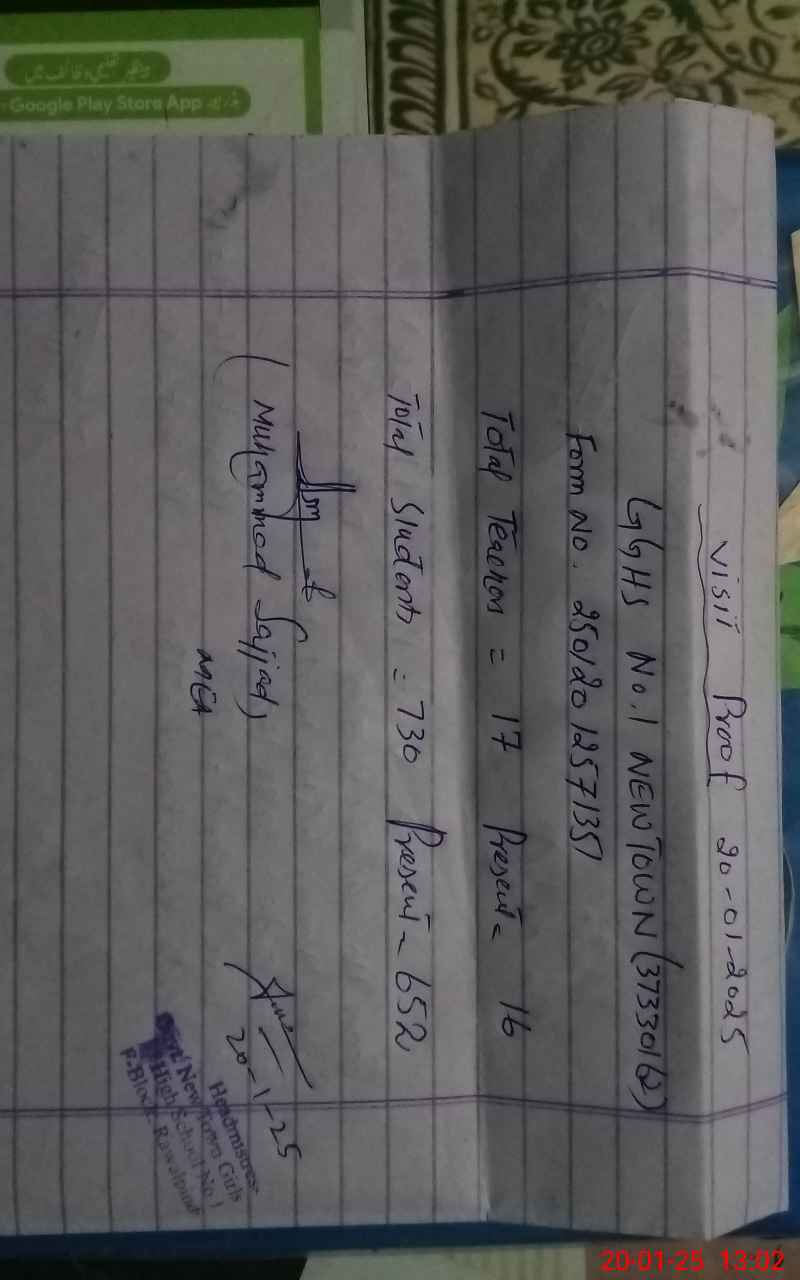 Visit Proof 20-01-2025
GGHS No.1 NEW TOWN (37330162)
Form No. 25012012571351
Total Teachers = 17 Present = 16
Total Students = 730 Present = 652
(Muhammad Sajjad)
MEA
20-1-25
Headmistress
Govt New Town Girls
High School No.1
F-Block Rawalpindi
بینظیر تعلیمی وظائف میں
Google Play Store App
20-01-25 13:02